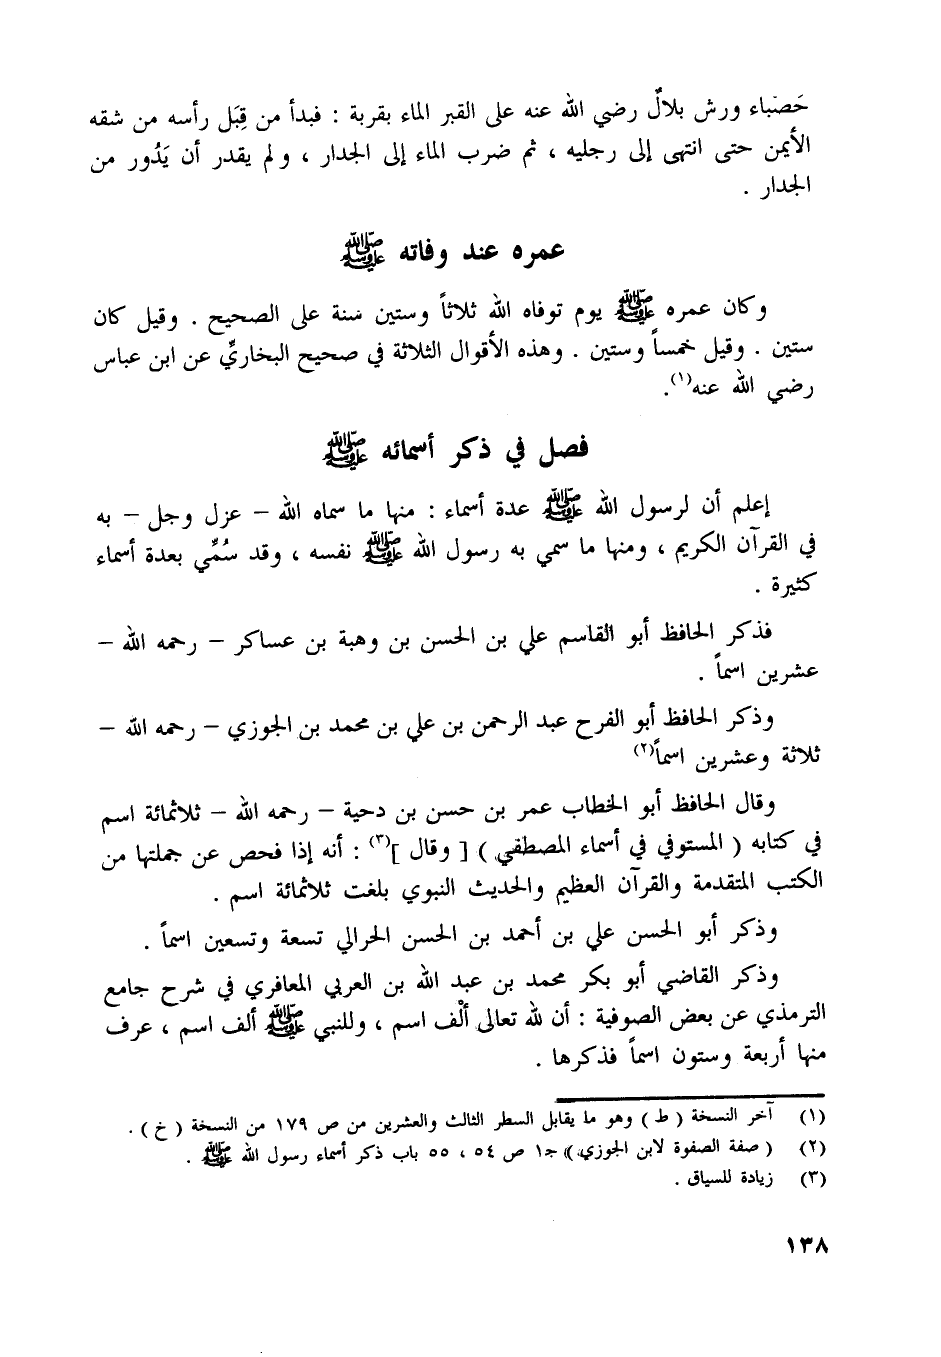 حَصْباء ورش بلالٌ رضي الله عنه على القبر الماء بقربة : فبدأ من قِبَل رأسه من شقه
الأيمن حتى انتهى إلى رجليه ، ثم ضرب الماء إلى الجدار ، ولم يقدر أن يَدُور من
الجدار .
عمره عند وفاته ﷺ
وكان عمره ﷺ يوم توفاه الله ثلاثاً وستين سنة على الصحيح . وقيل كان
ستين . وقيل خمساً وستين . وهذه الأقوال الثلاثة في صحيح البخاريِّ عن ابن عباس
رضي الله عنه(١).
فصل في ذكر أسمائه ﷺ
إعلم أن لرسول الله ﷺ عدة أسماء : منها ما سماه الله – عزل وجل – به
في القرآن الكريم ، ومنها ما سمي به رسول الله ﷺ نفسه ، وقد سُمِّي بعدة أسماء
كثيرة .
فذكر الحافظ أبو القاسم علي بن الحسن بن وهبة بن عساكر – رحمه الله –
عشرين اسماً .
وذكر الحافظ أبو الفرح عبد الرحمن بن علي بن محمد بن الجوزي – رحمه الله –
ثلاثة وعشرين اسماً(٢)
وقال الحافظ أبو الخطاب عمر بن حسن بن دحية – رحمه الله – ثلاثمائة اسم
في كتابه ( المستوفي في أسماء المصطفي ) [ وقال ](٣) : أنه إذا فحص عن جملتها من
الكتب المتقدمة والقرآن العظيم والحديث النبوي بلغت ثلاثمائة اسم .
وذكر أبو الحسن علي بن أحمد بن الحسن الحرالي تسعة وتسعين اسماً .
وذكر القاضي أبو بكر محمد بن عبد الله بن العربي المعافري في شرح جامع
الترمذي عن بعض الصوفية : أن لله تعالى ألْف اسم ، وللنبي ﷺ ألف اسم ، عرف
منها أربعة وستون اسماً فذكرها .
(١) آخر النسخة ( ط ) وهو ما يقابل السطر الثالث والعشرين من ص ١٧٩ من النسخة ( خ ) .
(٢) ( صفة الصفوة لابن الجوزي )، جـ١ ص ٥٤ ، ٥٥ باب ذكر أسماء رسول الله ﷺ .
(٣) زيادة للسياق .
١٣٨